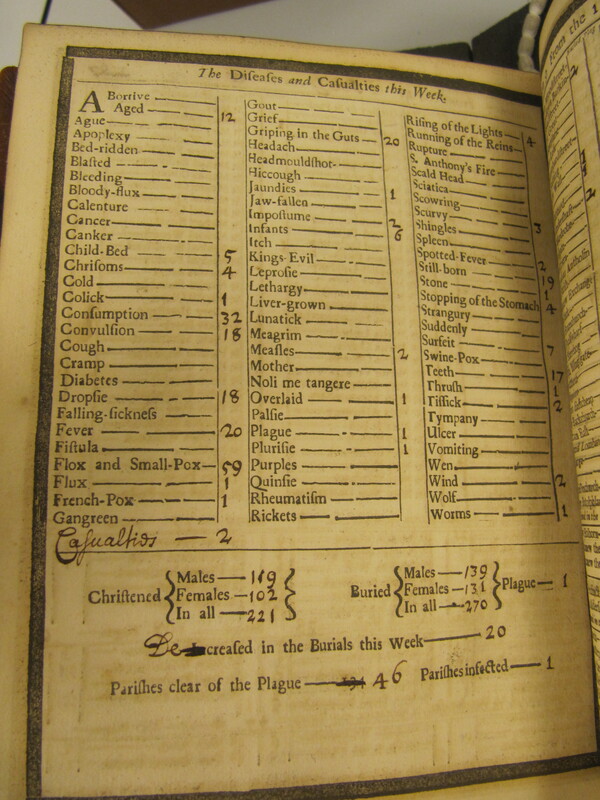 The Diſeaſes and Caſualties this Week.
ABortive
Aged 12
Ague
Apoplexy
Bed-ridden
Blaſted
Bleeding
Bloody-flux
Calenture
Cancer
Canker
Child-Bed 5
Chriſoms 4
Cold
Colick 1
Conſumption 32
Convulſion 18
Cough
Cramp
Diabetes
Dropſie 18
Falling-ſickneſs
Fever 20
Fiſtula
Flox and Small-Pox 59
Flux 1
French-Pox 1
Gangreen
Gout
Grief
Griping in the Guts 20
Headach
Headmouldſhot
Hiccough
Jaundies 1
Jaw-fallen
Impoſtume 2
Infants 6
Itch
Kings-Evil
Leproſie
Lethargy
Liver-grown
Lunatick
Meagrim
Meaſles 2
Mother
Noli me tangere
Overlaid 1
Palſie
Plague 1
Pluriſie 1
Purples
Quinſie
Rheumatiſm
Rickets
Riſing of the Lights 4
Running of the Reins
Rupture
S. Anthony's Fire
Scald Head
Sciatica
Scowring
Scurvy
Shingles 3
Spleen
Spotted-Fever 2
Still-born 19
Stone 1
Stopping of the Stomach 4
Strangury
Suddenly
Surfeit 7
Swine-Pox
Teeth 17
Thruſh 1
Tiſſick 2
Tympany
Ulcer
Vomiting
Wen
Wind 2
Wolf
Worms 1
Casualties — 2
Chriſtened { Males — 119
Females — 102
In all — 221 }
Buried { Males — 139
Females — 131
In all — 270 } Plague — 1
Decreaſed in the Burials this Week — 20
Pariſhes clear of the Plague — 46 Pariſhes infected — 1
From the 1